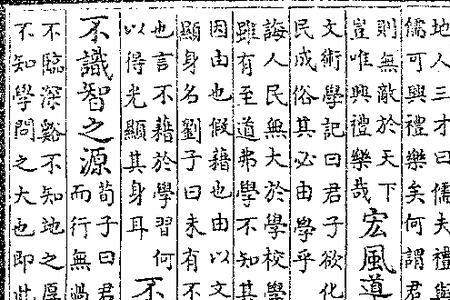 地人三才曰儒夫禮與
儒可興禮樂矣何謂君
則無敵於天下
豈唯興禮樂哉
宏風道
文術學記曰君子欲化
民成俗其必由學乎
誨人民無大於學校其
雖有至道弗學不知其
因由也假藉也由以文
顯身名劉子曰未有不
也言不藉於學習何
以得光顯其身耳
不
不識智之源
荀子曰君
而行無過
不臨深谿不知地之厚
不知學問之大也即此